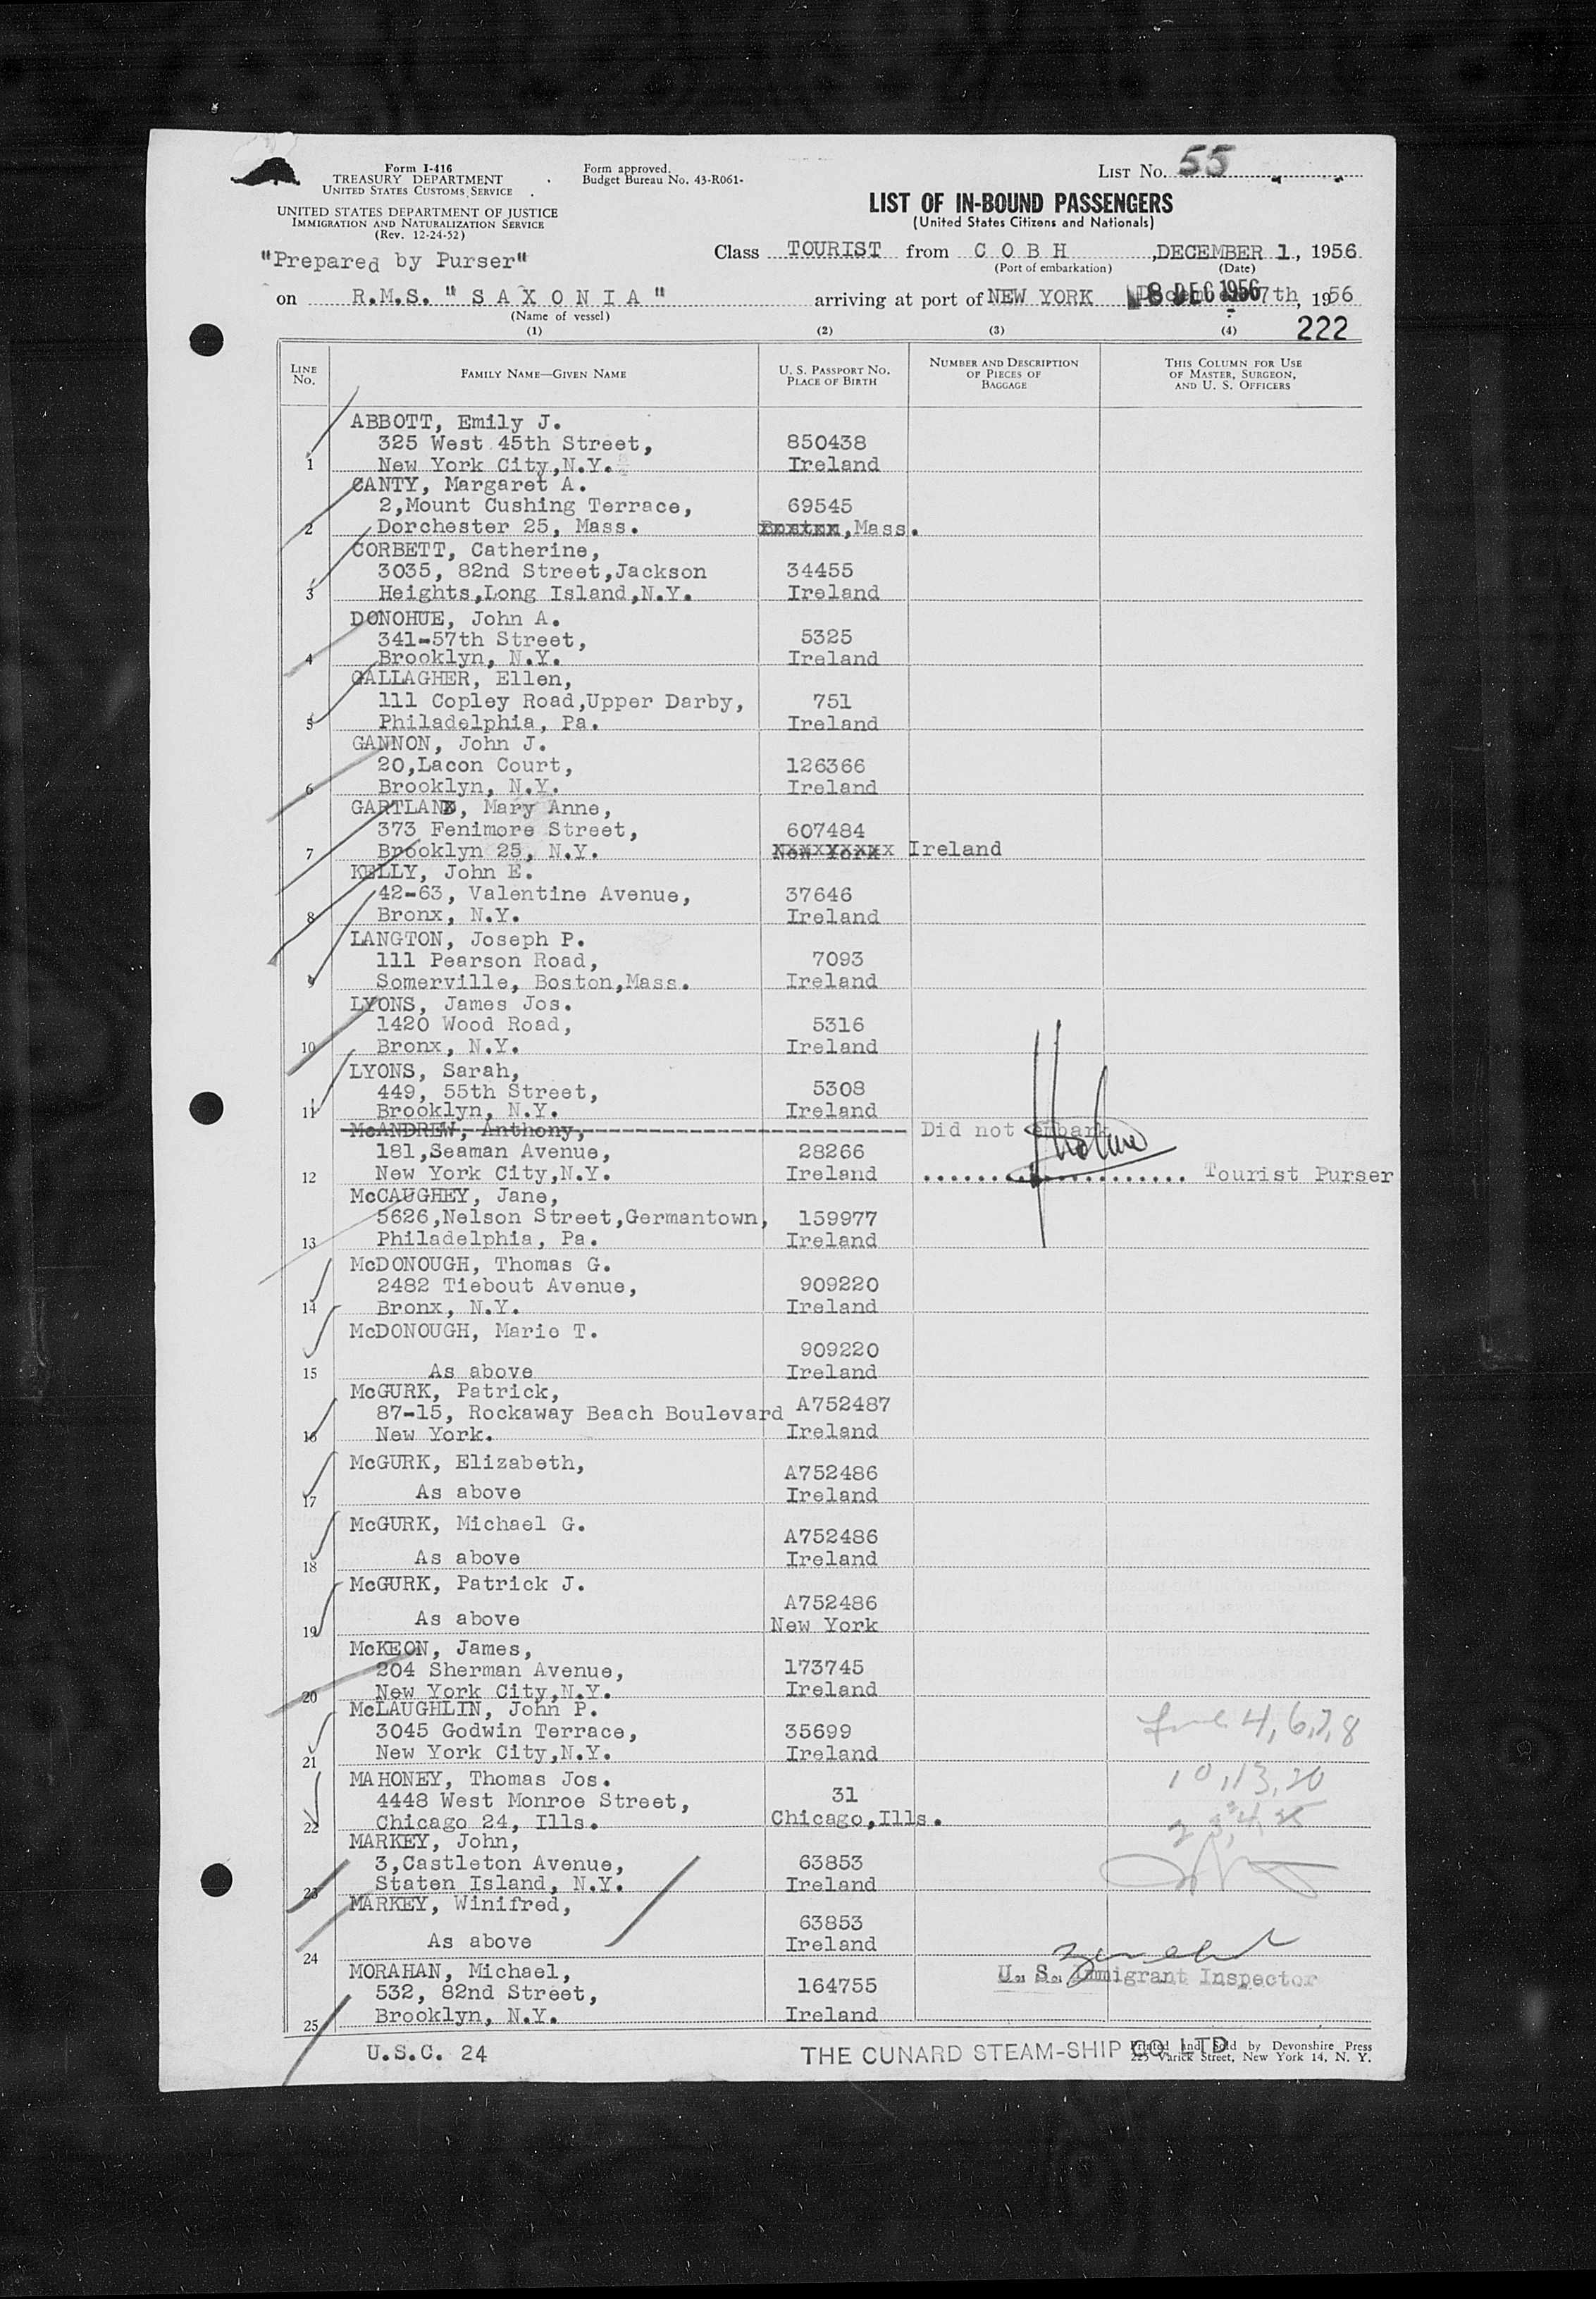 Form I-416
TREASURY DEPARTMENT
UNITED STATES CUSTOMS SERVICE
UNITED STATES DEPARTMENT OF JUSTICE
IMMIGRATION AND NATURALIZATION SERVICE
(Rev. 12-24-52)
"Prepared by Purser"
Form approved.
Budget Bureau No. 43-R061-
LIST No. 55
LIST OF IN-BOUND PASSENGERS
(United States Citizens and Nationals)
Class TOURIST from C O B H , DECEMBER 1, 1956
(Port of embarkation) (Date)
on R.M.S. " S A X O N I A " arriving at port of NEW YORK 8 DEC 1956 December 7th, 1956
(Name of vessel)
(1) (2) (3) (4) 222
LINE No. FAMILY NAME—GIVEN NAME U. S. PASSPORT No. PLACE OF BIRTH NUMBER AND DESCRIPTION OF PIECES OF BAGGAGE THIS COLUMN FOR USE OF MASTER, SURGEON, AND U. S. OFFICERS
ABBOTT, Emily J.
325 West 45th Street, 850438
1 New York City,N.Y. Ireland
CANTY, Margaret A.
2,Mount Cushing Terrace, 69545
2 Dorchester 25, Mass. Boston,Mass.
CORBETT, Catherine,
3035, 82nd Street,Jackson 34455
3 Heights,Long Island,N.Y. Ireland
DONOHUE, John A.
341-57th Street, 5325
4 Brooklyn, N.Y. Ireland
GALLAGHER, Ellen,
111 Copley Road,Upper Darby, 751
5 Philadelphia, Pa. Ireland
GANNON, John J.
20,Lacon Court, 126366
6 Brooklyn, N.Y. Ireland
GARTLAND, Mary Anne,
373 Fenimore Street, 607484
7 Brooklyn 25, N.Y. New York Ireland
KELLY, John E.
42-63, Valentine Avenue, 37646
8 Bronx, N.Y. Ireland
LANGTON, Joseph P.
111 Pearson Road, 7093
9 Somerville, Boston,Mass. Ireland
LYONS, James Jos.
1420 Wood Road, 5316
10 Bronx, N.Y. Ireland
LYONS, Sarah,
449, 55th Street, 5308
11 Brooklyn, N.Y. Ireland
McANDREW, Anthony, Did not embark
181,Seaman Avenue, 28266
12 New York City,N.Y. Ireland Tourist Purser
McCAUGHEY, Jane,
5626,Nelson Street,Germantown, 159977
13 Philadelphia, Pa. Ireland
McDONOUGH, Thomas G.
2482 Tiebout Avenue, 909220
14 Bronx, N.Y. Ireland
McDONOUGH, Marie T.
909220
15 As above Ireland
McGURK, Patrick,
87-15, Rockaway Beach Boulevard A752487
16 New York. Ireland
McGURK, Elizabeth, A752486
17 As above Ireland
McGURK, Michael G. A752486
18 As above Ireland
McGURK, Patrick J. A752486
19 As above New York
McKEON, James,
204 Sherman Avenue, 173745
20 New York City,N.Y. Ireland
McLAUGHLIN, John P.
3045 Godwin Terrace, 35699 4, 6, 7, 8
21 New York City,N.Y. Ireland
MAHONEY, Thomas Jos. 10, 13, 20
4448 West Monroe Street, 31
22 Chicago 24, Ills. Chicago,Ills.
MARKEY, John,
3,Castleton Avenue, 63853
23 Staten Island, N.Y. Ireland
MARKEY, Winifred,
63853
24 As above Ireland
MORAHAN, Michael, U. S. Immigrant Inspector
532, 82nd Street, 164755
25 Brooklyn, N.Y. Ireland
U.S.C. 24
THE CUNARD STEAM-SHIP CO LTD
Printed and Sold by Devonshire Press
225 Varick Street, New York 14, N. Y.